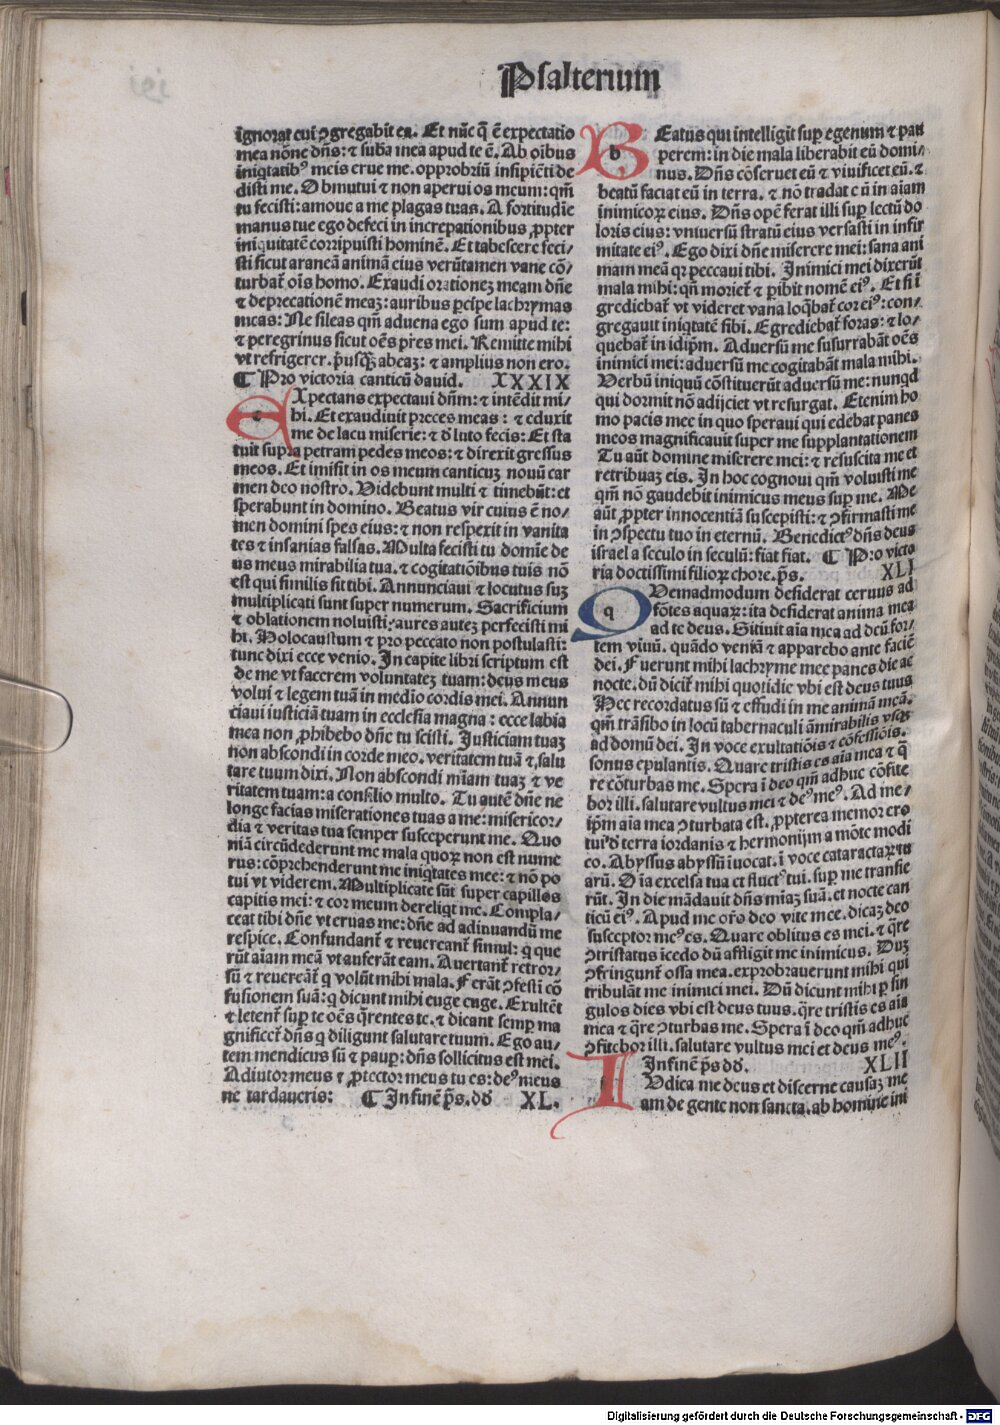 Psalterium
ignorat cui ↄgregabit ea. Et nūc q̄ ē expectatio
mea nōne dn̄s: ⁊ suba mea apud te ē. Ab oibus
iniqtatibꝰ meis erue me. opprobriū insipiēti de
disti me. Obmutui ⁊ non aperui os meum: qm̄
tu fecisti: amoue a me plagas tuas. A fortitudie
manus tue ego defeci in increpationibus ꝓpter
iniquitatē corripuisti hominē. Et tabescere feci/
sti sicut araneā animā eius verūtamen vane cō/
turbat᷑ oīs homo. Exaudi orationez meam dn̄e
⁊ deprecationē meaz: auribus ꝑcipe lachrymas
meas: Ne sileas qm̄ aduena ego sum apud te:
⁊ peregrinus sicut oēs pr̄es mei. Remitte mihi
vt refrigerer. pusqꝫ abeaz: ⁊ amplius non ero.
¶ Pro victoria canticū dauid. XXXIX
e Xpectans expectaui dn̄m: ⁊ intēdit mi/
hi. Et exaudiuit preces meas: ⁊ eduxit
me de lacu miserie: ⁊ d̄ luto fecis: Et sta
tuit supra petram pedes meos: ⁊ direxit gressus
meos. Et imisit in os meum canticuz nouū car
men deo nostro. Videbunt multi ⁊ timebūt: et
sperabunt in domino. Beatus vir cuius ē no/
men domini spes eius: ⁊ non respexit in vanita
tes ⁊ insanias falsas. Multa fecisti tu domīe de
us meus mirabilia tua. ⁊ cogitatiōibus tuis nō
est qui similis sit tibi. Annunciaui ⁊ locutus suz
multiplicati sunt super numerum. Sacrificium
⁊ oblationem noluisti: aures autez perfecisti mi
hi. Holocaustum ⁊ pro peccato non postulasti:
tunc dixi ecce venio. In capite libri scriptum est
de me vt facerem voluntatez tuam: deus meus
volui ⁊ legem tuā in medio cordis mei. Annun
ciaui iusticiā tuam in ecclesia magna: ecce labia
mea non ꝓhibebo dn̄e tu scisti. Justiciam tuaz
non abscondi in corde meo. veritatem tuā ⁊ salu
tare tuum dixi. Non abscondi mīam tuaz ⁊ ve
ritatem tuam: a consilio multo. Tu autē dn̄e ne
longe facias miserationes tuas a me: misericor/
dia ⁊ veritas tua semper susceperunt me. Quo
niā circūdederunt me mala quoꝝ non est nume
rus: cōprehenderunt me iniqtates mee: ⁊ nō po
tui vt viderem. Multiplicate sūt super capillos
capitis mei: ⁊ cor meum dereliqt me. Compla/
ceat tibi dn̄e vt eruas me: dn̄e ad adiuuandū me
respice. Confundant᷑ ⁊ reuereant᷑ simul: q que
rūt aīam meā vt auferāt eam. Auertant᷑ retror/
sū ⁊ reuereāt᷑ q volūt mihi mala. Ferāt ↄfesti cō
fusionem suā: q dicunt mihi euge euge. Exultēt
⁊ letent᷑ suꝑ te oēs q̄rentes te. ⁊ dicant semꝑ ma
gnificet᷑ dn̄s q diligunt salutare tuum. Ego au/
tem mendicus sū ⁊ pauꝑ: dn̄s sollicitus est mei.
Adiutor meus ⁊ ꝓtector meus tu es: deꝰ meus
ne tardaueris: ¶ In finē ps̄. dd̄ XL.
b Eatus qui intelligit suꝑ egenum ⁊ pau
perem: in die mala liberabit eū domi/
nus. Dn̄s cōseruet eū ⁊ viuificet eū. ⁊
beatū faciat eū in terra. ⁊ nō tradat eū in aīam
inimicoꝝ eius. Dn̄s opē ferat illi suꝑ lectū do
loris eius: vniuersū stratū eius versasti in infir
mitate eiꝰ. Ego dixi dn̄e miserere mei: sana ani
mam meā qꝛ peccaui tibi. Inimici mei dixerūt
mala mihi: qn̄ moriet᷑ ⁊ ꝑibit nomē eiꝰ. Et si ī
grediebat᷑ vt videret vana loq̄bat᷑ cor eiꝰ: con/
gregauit iniqtatē sibi. Egrediebat᷑ foras: ⁊ lo/
quebat᷑ in idip̄m. Aduersū me susurrabāt oēs
inimici mei: aduersū me cogitabāt mala mihi.
Verbū iniquū cōstituerūt aduersū me: nunqd
qui dormit non adijciet vt resurgat. Etenim ho
mo pacis mee in quo speraui qui edebat panes
meos magnificauit super me supplantationem
Tu aūt domine miserere mei: ⁊ resuscita me et
retribuaz eis. In hoc cognoui qm̄ voluisti me
qm̄ nō gaudebit inimicus meus suꝑ me. Me
aūt ꝓpter innocentiā suscepisti: ⁊ ↄfirmasti me
in ↄspectu tuo in eternū. Benedictꝰ dn̄s deus
israel a seculo in seculū: fiat fiat. ¶ Pro victo
ria doctissimi filioꝝ chore. ps̄. XLI
q Vemadmodum desiderat ceruus ad
fōtes aquaꝝ: ita desiderat anima mea
ad te deus. Sitiuit aīa mea ad deū for/
tem viuū. quādo veniā ⁊ apparebo ante faciē
dei. Fuerunt mihi lachryme mee panes die ac
nocte. dū dicit᷑ mihi quotidie vbi est deus tuus
Hec recordatus sū ⁊ effudi in me animā meā.
qm̄ trāsibo in locū tabernaculi āmirabilis vsqꝫ
ad domū dei. In voce exultatiōis ⁊ cōfessiōis.
sonus epulantis. Quare tristis es aīa mea ⁊ q̄
re cōturbas me. Spera ī deo qm̄ adhuc cōfite
bor illi. salutare vultus mei ⁊ deꝰ meꝰ. Ad me/
ip̄m aīa mea ↄturbata est. ꝓpterea memor ero
tui d̄ terra iordanis ⁊ hermonijm a mōte modi
co. Abyssus abyssū iuocat. ī voce cataractaꝝ tu
arū. Oīa excelsa tua et fluctꝰ tui. suꝑ me transie
rūt. In die mādauit dn̄s mīaz suā. et nocte can
ticū eiꝰ. Apud me or̄o deo vite mee. dicaz deo
susceptor meꝰ es. Quare oblitus es mei. ⁊ q̄re
ↄtristatus icedo dū affligit me inimicus. Duz
ↄfringunt᷑ ossa mea. exprobrauerunt mihi qui
tribulāt me inimici mei. Dū dicunt mihi ꝑ sin
gulos dies vbi est deus tuus. q̄re tristis es aīa
mea ⁊ q̄re ↄturbas me. Spera ī deo qm̄ adhuc
ↄfitebor illi. salutare vultus mei et deus meꝰ.
In finem ps̄ dd̄. XLII
I Vdica me deus et discerne causaz me
am de gente non sancta. ab homine ini
Digitalisierung gefördert durch die Deutsche Forschungsgemeinschaft - DFG